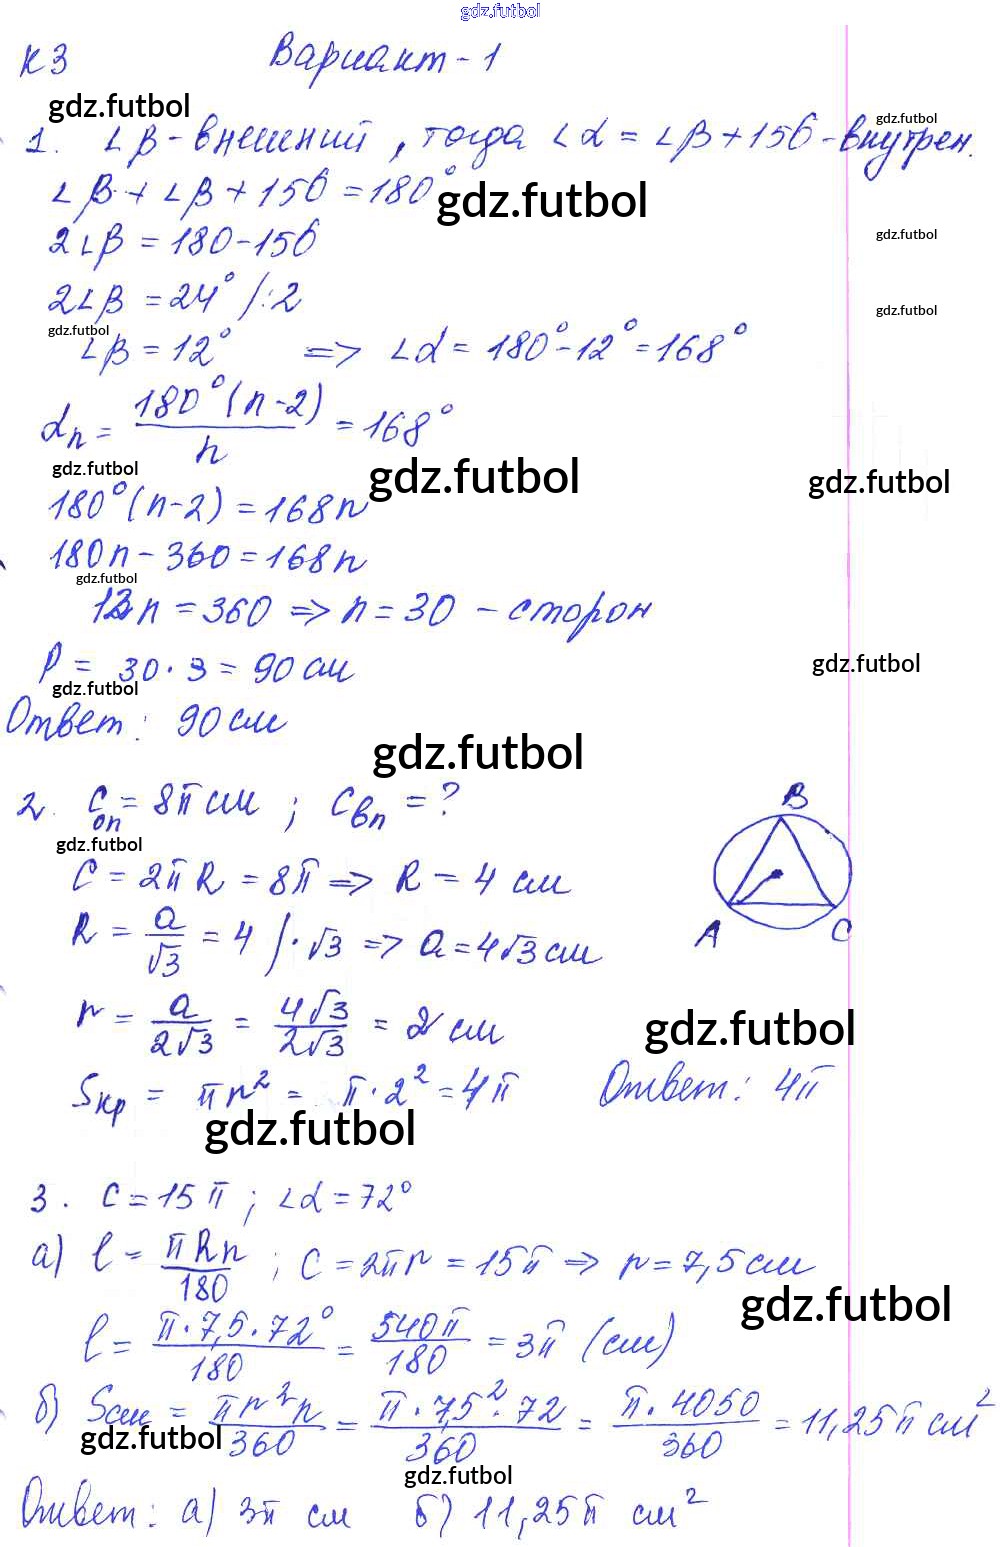 gdz.futbol
К3 Вариант-1
gdz.futbol
gdz.futbol
1. ∠β-внешний, тогда ∠α = ∠β+156-внутрен.
∠β + ∠β + 156 = 180°
gdz.futbol
2∠β = 180-156
gdz.futbol
2∠β = 24° /:2
gdz.futbol
gdz.futbol
∠β = 12° => ∠α = 180°-12° = 168°
αn = 180°(n-2)/n = 168°
gdz.futbol
gdz.futbol
gdz.futbol
180°(n-2) = 168n
180n - 360 = 168n
gdz.futbol
12n = 360 => n = 30 - сторон
P = 30·3 = 90 см
gdz.futbol
gdz.futbol
Ответ: 90 см
gdz.futbol
2. Cоп = 8π см ; Cвп = ?
B
gdz.futbol
C = 2πR = 8π => R = 4 см
R = a/√3 = 4 /·√3 => a = 4√3 см
A C
r = a/2√3 = 4√3/2√3 = 2 см
gdz.futbol
Sкр = πr² = π·2² = 4π Ответ: 4π
gdz.futbol
3. C = 15π ; ∠α = 72°
а) l = πRn/180 ; C = 2πr = 15π => r = 7,5 см
gdz.futbol
l = π·7,5·72°/180 = 540π/180 = 3π (см)
б) Sсм = πr²n/360 = π·7,5²·72/360 = π·4050/360 = 11,25π см²
gdz.futbol
gdz.futbol
Ответ: а) 3π см б) 11,25π см²